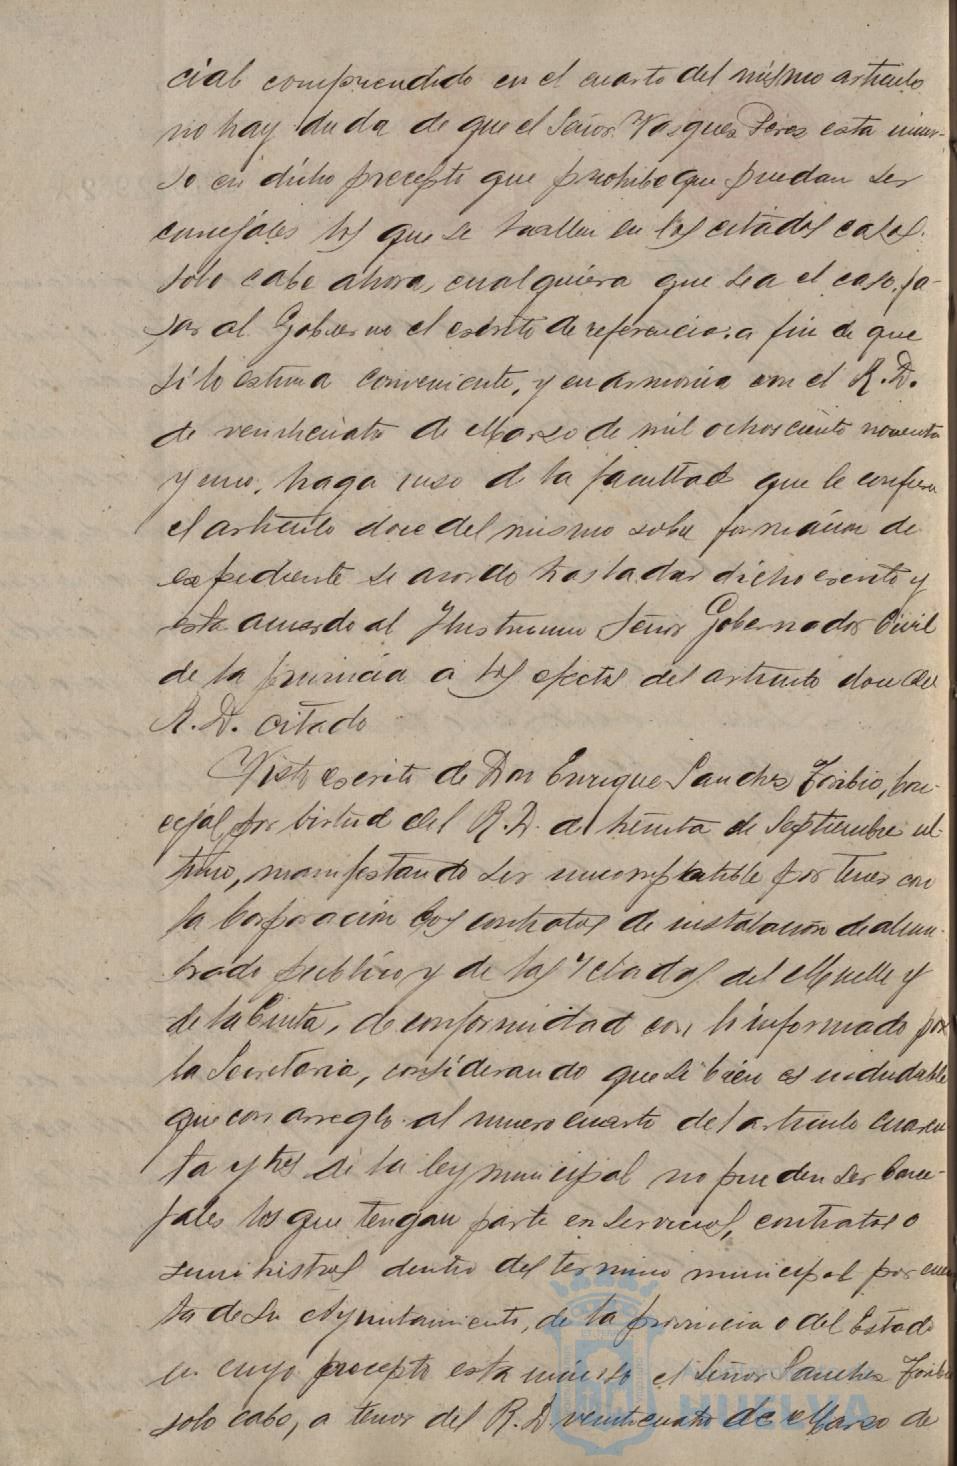 cial comprendido en el cuarto del mismo articulo
no hay duda de que el Señor Vasquez Perez esta incur-
so en dicho precepto que prohibe que puedan ser
concejales los que se hallen en los citados casos.
solo cabe ahora, cualquiera que sea el caso, pa-
sar al Gobierno el escrito de referencia. a fin de que
si lo estima conveniente, y en armonia con el R. D.
de veinticuatro de Marzo de mil ochocientos noventa
y uno, haga uso de la facultad que le confiere
el articulo doce del mismo sobre formación de
expediente se acordo trasladar dicho escrito y
este acuerdo al Ilustrisimo Señor Gobernador Civil
de la provincia a los efectos del articulo doce del
R. D. citado
Visto escrito de Don Enrique Sanchez Toribio, Con-
cejal por virtud del R. D. de treinta de Septiembre ul-
timo, manifestando ser incompatible por tener con
la Corporación los contratos de instalación de alum-
brado publico y de los Velados del Muelle y
de la Cinta, de conformidad con lo informado por
la Secretaria, considerando que si bien es indudable
que con arreglo al numero cuarto del articulo cuaren
ta y tres de la ley municipal no pueden ser Conce-
jales los que tengan parte en servicios, contratos o
suministros dentro del termino municipal por cuen
ta de su Ayuntamiento, de la provincia o del Estado
en cuyo precepto esta incurso el Señor Sanchez Toribio
solo cabe, a tenor del R. D. veinticuatro de Marzo de
HUELVA